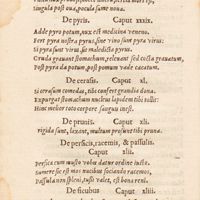 singula post oua, pocula sume noua.
De pyris. Caput xxxix.
Adde pyro potum, nux est medicina veneno.
Fert pyra nostra pyrus, sine vino sunt pyra virus:
si pyra sunt virus, sit maledicta pyrus.
Cruda grauant stomachum, releuant sed cocta grauatum,
Post pyra da potum, post pomum vade cacatum.
De cerasis. Caput xl.
si cerasum comedas, tibi confert grandia dona.
Expurgat stomachum nucleus lapidem tibi tollit:
Hinc melior toto corpore sanguis inest.
De prunis. Caput xli.
rigida sunt, laxant, multum prosunt tibi pruna.
De persicis, racemis, & passulis.
Caput xlii.
Persica cum musto vobis datur ordine iusto.
sumere sic est mos nucibus sociando racemos,
Passula non spleni, tussi valet, est bona reni.
De ficubus Caput xliii.